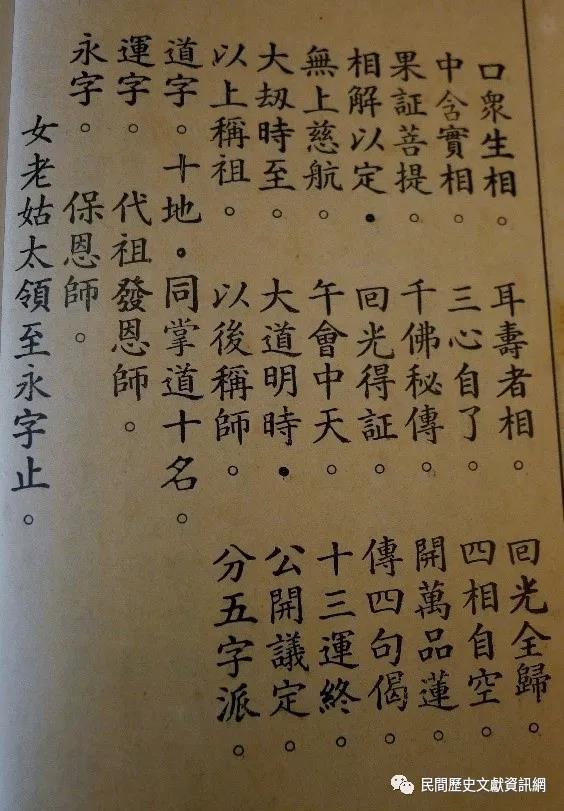 口衆生相。耳壽者相。回光全歸。
中含實相。三心自了。四相自空。
果証菩提。千佛秘傳。開萬品蓮。
相解以定。回光得証。傳四句偈。
無上慈航。午會中天。十三運終。
大刼時至。大道明時。公開議定。
以上稱祖。以後稱師。分五字派。
道字。十地。同掌道十名。
運字。代祖發恩師。
永字。保恩師。
女老姑太領至永字止。
民間歷史文獻資訊網